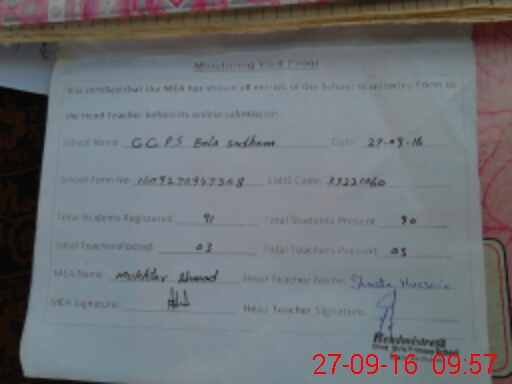 Monitoring Visit Proof
It is certified that the MEA has shown all entries of the School Monitoring Form to
the Head Teacher before its online submission.
School Name: GGPS Date: 27-09-16
School Form No: EMIS Code:
Total Students Registered: 91 Total Students Present: 90
Total Teachers Posted: 03 Total Teachers Present: 03
MEA Name: Mukhtar Ahmad Head Teacher Name: Hussain
MEA Signature: Head Teacher Signature:
Headmistress
Govt. Girls Primary School
27-09-16 09:57